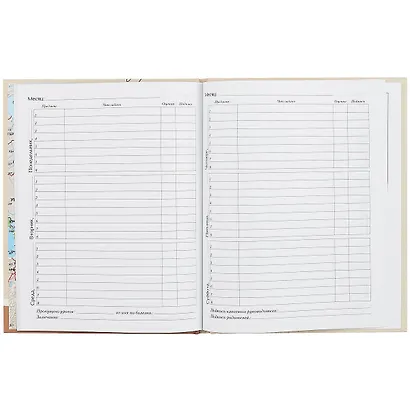 Месяц
Предмет Что задано Оценка Подпись
Понедельник
1
2
3
4
5
6
7
8
Вторник
1
2
3
4
5
6
7
8
Среда
1
2
3
4
5
6
7
8
Пропущено уроков
Замечания
Месяц
Предмет Что задано Оценка Подпись
Четверг
1
2
3
4
5
6
7
8
Пятница
1
2
3
4
5
6
7
8
Суббота
1
2
3
4
5
6
7
8
Подпись классного руководителя
Подпись родителей